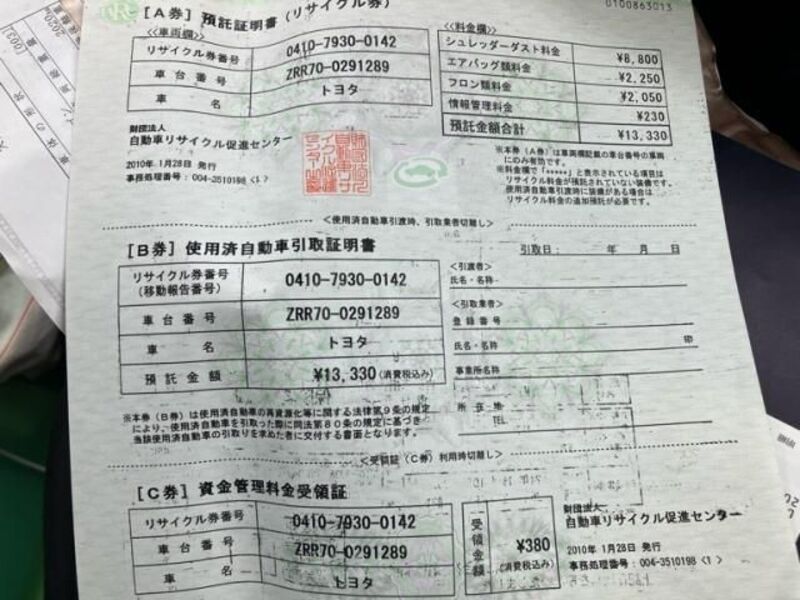 0100863013
[A券] 預託証明書(リサイクル券)
≪車両欄≫
リサイクル券番号 0410-7930-0142
車台番号 ZRR70-0291289
車名 トヨタ
≪料金欄≫
シュレッダーダスト料金 ¥8,800
エアバッグ類料金 ¥2,250
フロン類料金 ¥2,050
情報管理料金 ¥230
預託金額合計 ¥13,330
財団法人
自動車リサイクル促進センター
2010年 1月28日 発行
事務処理番号:004-3510198 <1>
※本券(A券)は車両欄記載の車台番号の車両
にのみ有効です。
※料金欄で「*****」と表示されている項目は
リサイクル料金が預託されていない装備です。
使用済自動車引渡時に装備がある場合は
リサイクル料金の追加預託が必要です。
<使用済自動車引渡時、引取業者切離し>
[B券] 使用済自動車引取証明書
引取日: 年 月 日
リサイクル券番号
(移動報告番号) 0410-7930-0142
車台番号 ZRR70-0291289
車名 トヨタ
預託金額 ¥13,330(消費税込み)
<引渡者>
氏名・名称
<引取業者>
登録番号
氏名・名称 印
事業所名称
所在地
TEL
※本券(B券)は使用済自動車の再資源化等に関する法律第9条の規定
により、使用済自動車を引取った際に同法第80条の規定に基づき
当該使用済自動車の引取りを求めた者に交付する書面となります。
<受領証(C券)利用時切離し>
[C券] 資金管理料金受領証
リサイクル券番号 0410-7930-0142
車台番号 ZRR70-0291289
車名 トヨタ
受領金額 ¥380
(消費税込み)
財団法人
自動車リサイクル促進センター
2010年 1月28日 発行
事務処理番号:004-3510198 <1>